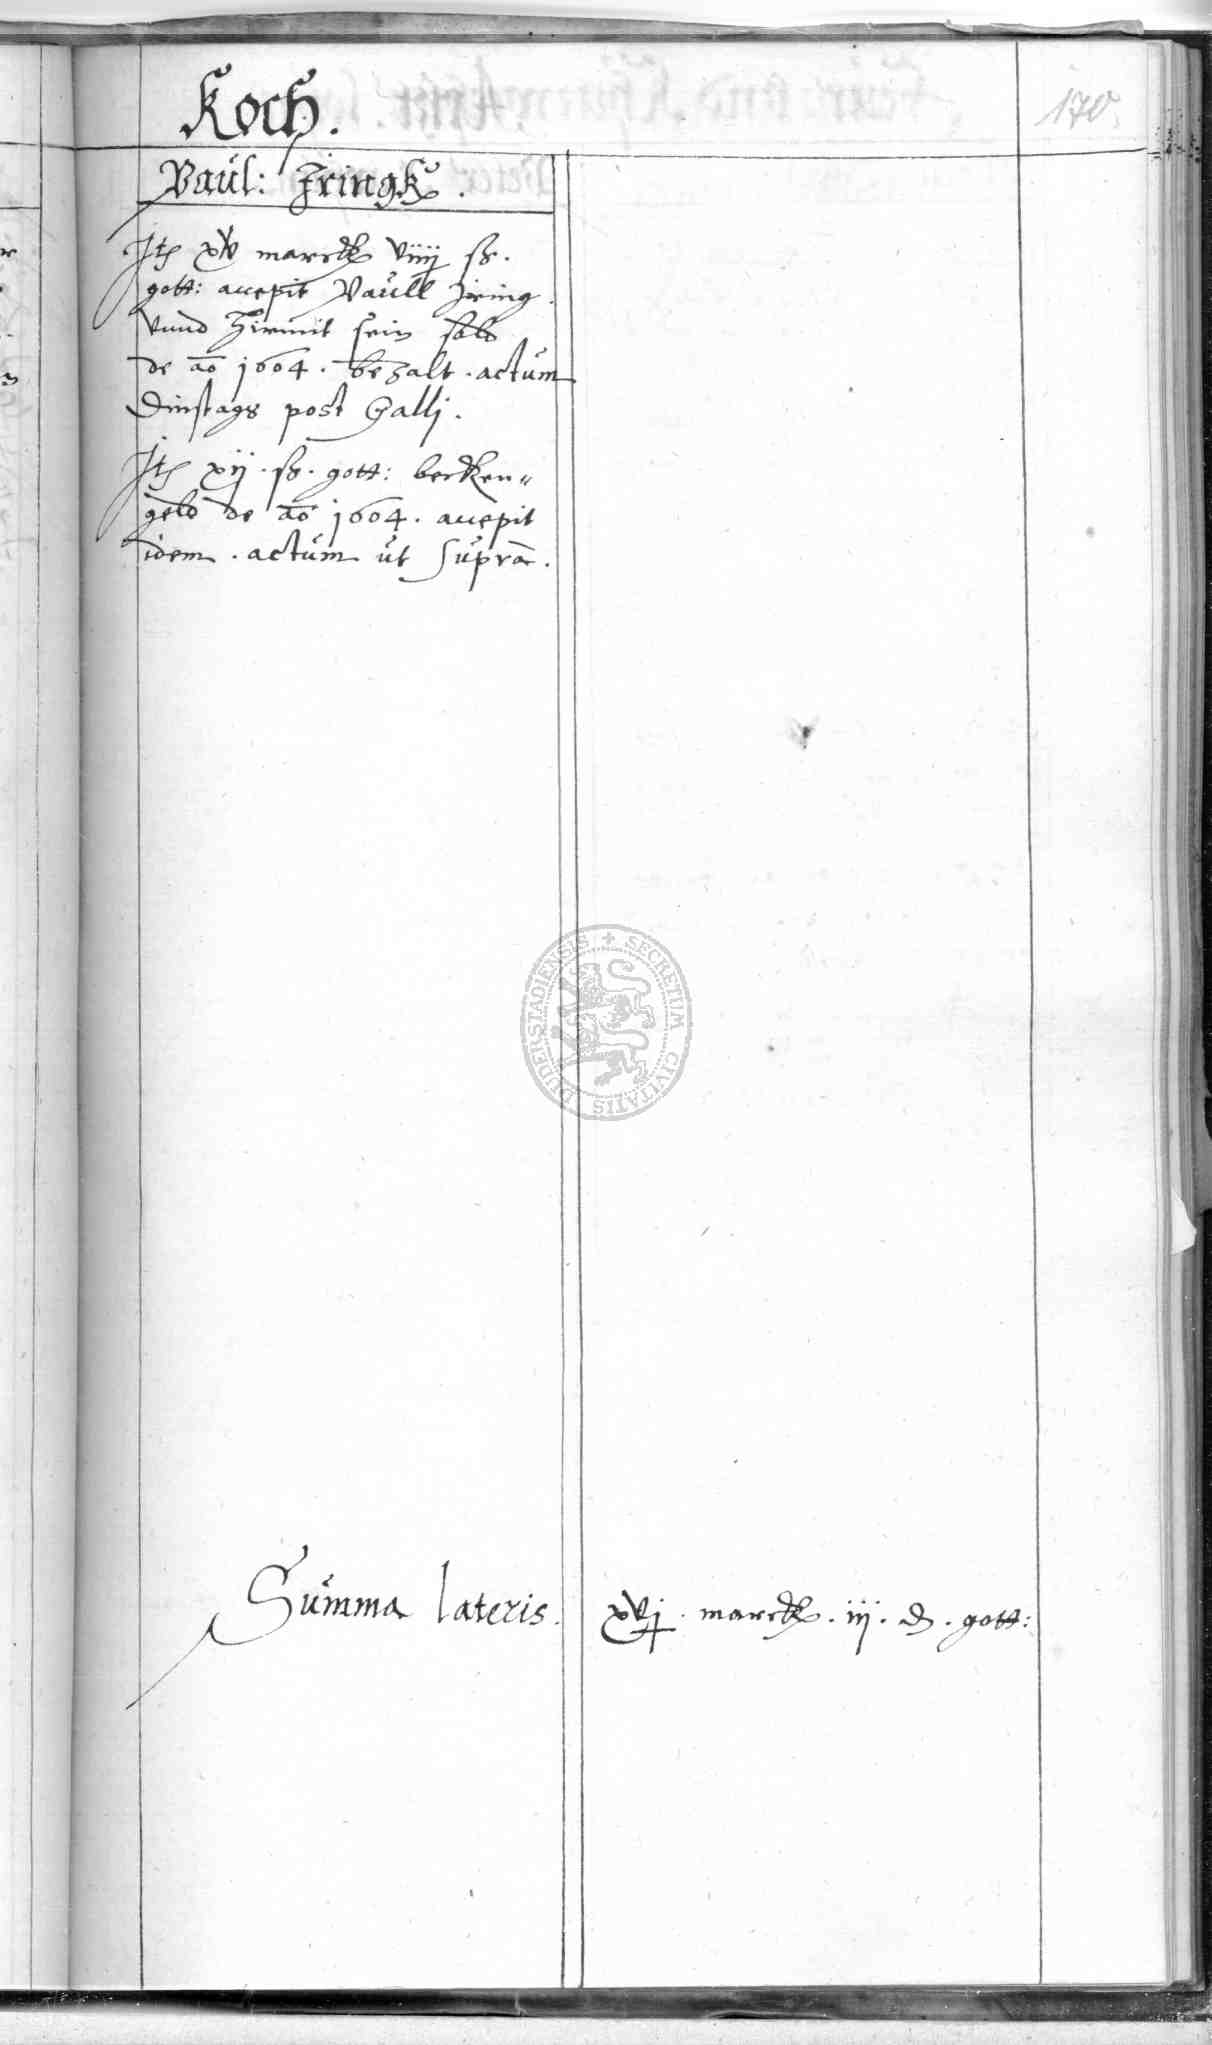 170.
Koch.
Paül: Iringk.
Itē xv marck viiij ß.
gott: accepit Paüll Iring
vnnd hirmit sein sold
de ao 1604. bezalt. actüm
Dinstags post Galli.
Itē xij. ß. gott: becken-
geld de ao 1604. accepit
idem. actüm üt süpra.
SECRETUM CIVITATIS DUDERSTADIENSIS
Sümma lateris. xvj. marck. iij. d. gott: